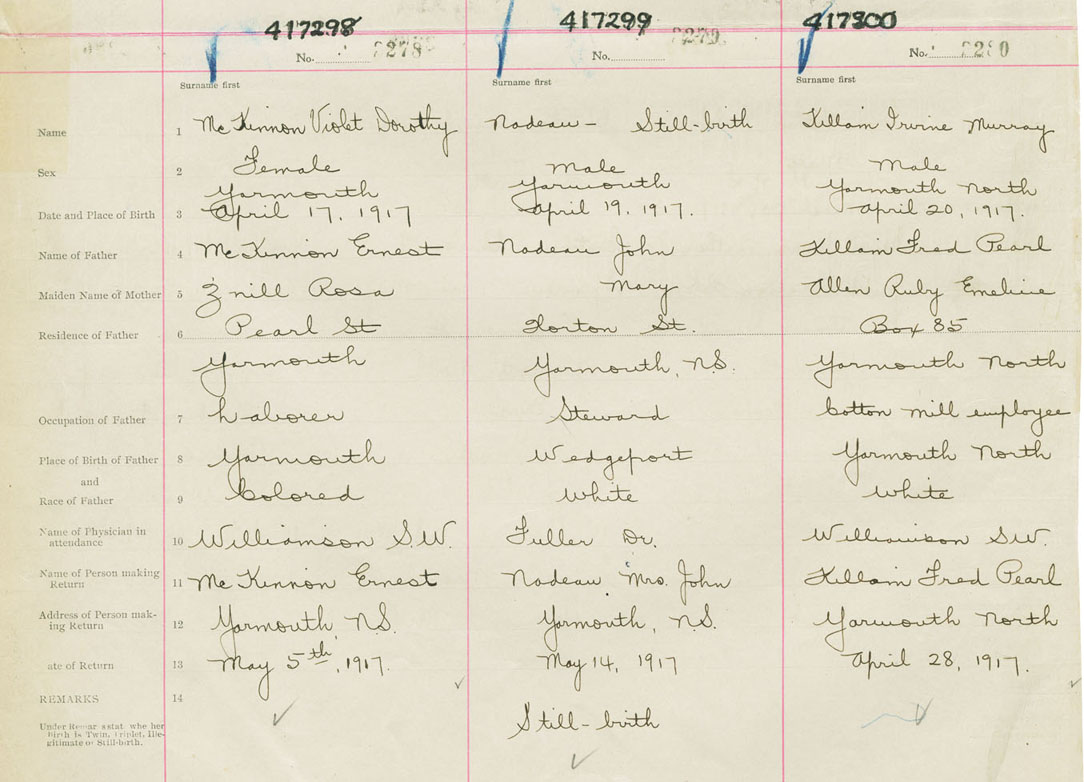 417298 417299 417300
No. 3278 No. 3279 No. 3280
Surname first Surname first Surname first
Name 1 McKinnon Violet Dorothy Nadeau - Still-birth Killam Irvine Murray
Sex 2 Female Male Male
Yarmouth Yarmouth Yarmouth North
Date and Place of Birth 3 April 17, 1917 April 19, 1917. April 20, 1917.
Name of Father 4 McKinnon Ernest Nadeau John Killam Fred Pearl
Maiden Name of Mother 5 Rosa Mary Allen Ruby Emeline
Residence of Father 6 Pearl St Horton St. Box 85
Yarmouth Yarmouth, N.S. Yarmouth North
Occupation of Father 7 Laborer Steward Cotton mill employee
Place of Birth of Father 8 Yarmouth Wedgeport Yarmouth North
and
Race of Father 9 Colored White White
Name of Physician in
attendance 10 Williamson S.W. Fuller Dr. Williamson S.W.
Name of Person making
Return 11 McKinnon Ernest Nadeau Mrs. John Killam Fred Pearl
Address of Person mak-
ing Return 12 Yarmouth, N.S. Yarmouth, N.S. Yarmouth North
ate of Return 13 May 5th, 1917. May 14, 1917 April 28, 1917.
REMARKS 14
Still-birth
Under Remar s stat whe her
birth is Twin, Triplet, Ille-
gitimate or Still-birth.